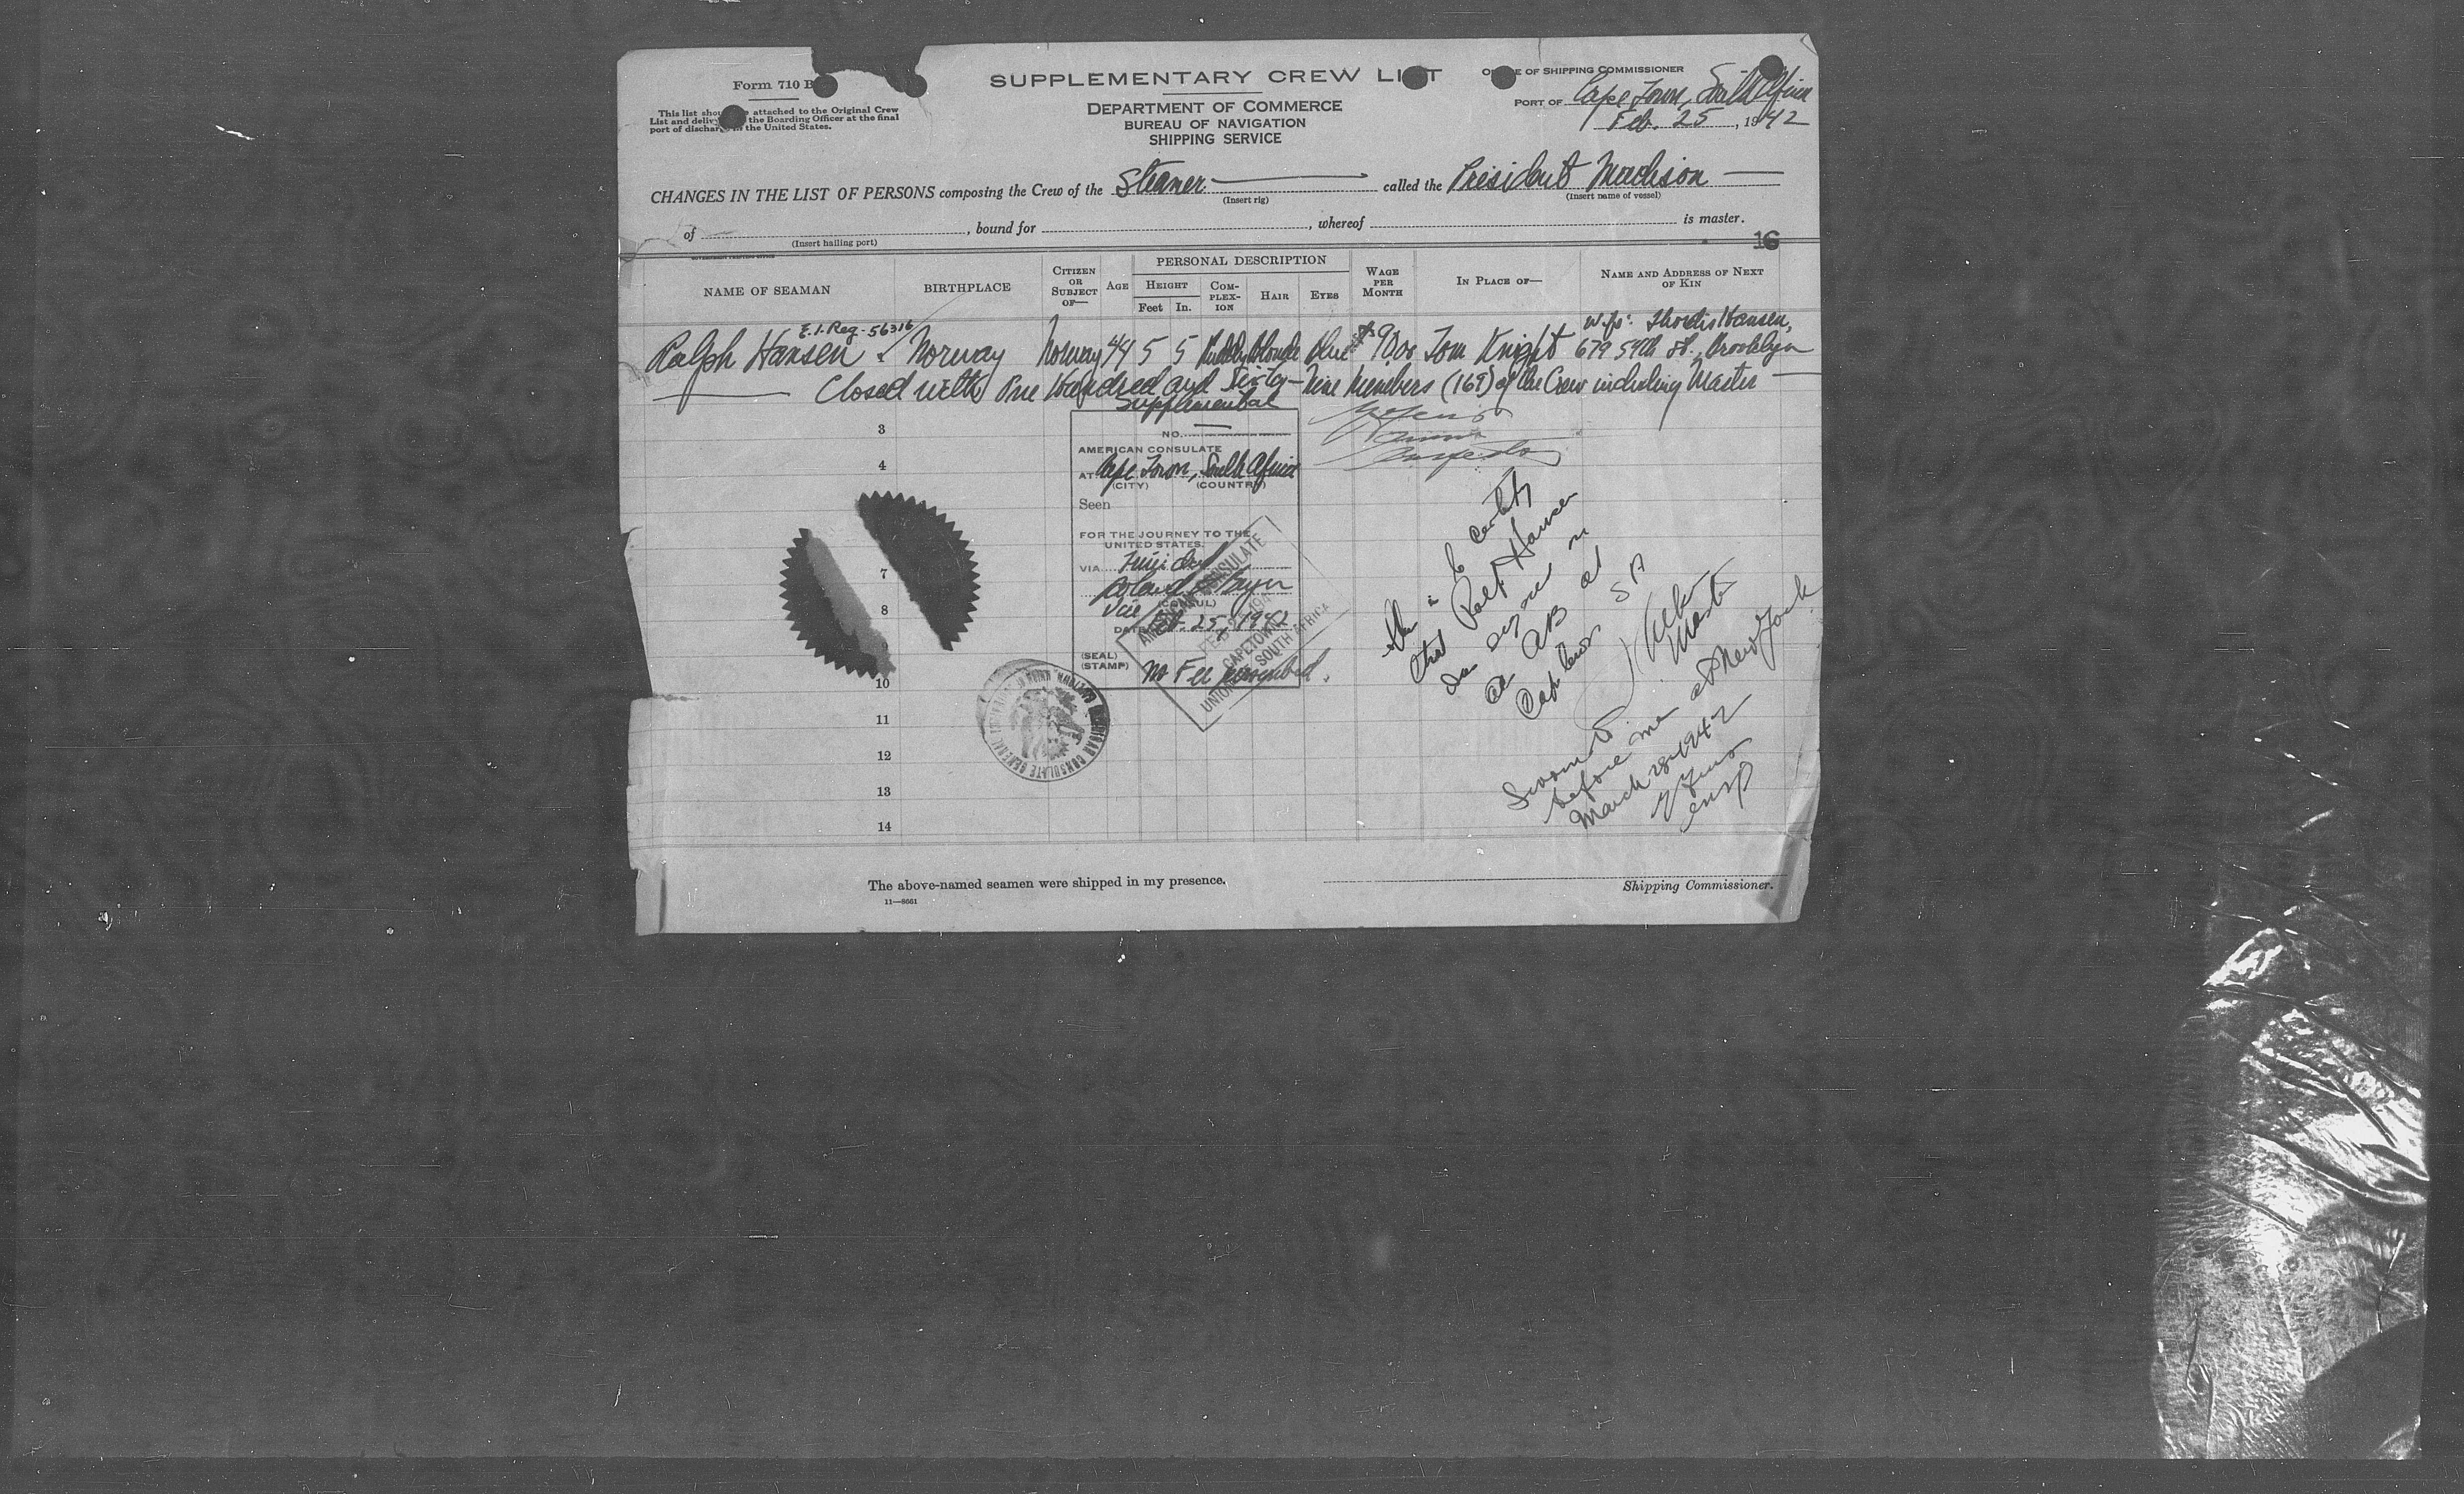 Form 710 B
SUPPLEMENTARY CREW LIST
OFFICE OF SHIPPING COMMISSIONER
This list should be attached to the Original Crew
List and delivered the Boarding Officer at the final
port of discharge in the United States.
DEPARTMENT OF COMMERCE
BUREAU OF NAVIGATION
SHIPPING SERVICE
PORT OF Cape Town, South Africa
Feb. 25, 1942
CHANGES IN THE LIST OF PERSONS composing the Crew of the Steamer called the President Madison
(Insert rig) (Insert name of vessel)
of , bound for , whereof is master.
(Insert hailing port)
16
GOVERNMENT PRINTING OFFICE
NAME OF SEAMAN BIRTHPLACE CITIZEN OR SUBJECT OF— AGE PERSONAL DESCRIPTION HEIGHT Feet In. COMPLEXION HAIR EYES WAGE PER MONTH IN PLACE OF— NAME AND ADDRESS OF NEXT OF KIN
E.I. Reg. 56316
Wife: Thordis Hansen,
Ralph Hansen Norway Norway 44 5 5 Ruddy blonde blue $90.00 Tom Knight 679 59th St., Brooklyn
Closed with One Hundred and Sixty-Nine Members (169) of the Crew including Master
Supplemental
3
NO.
AMERICAN CONSULATE
4
AT Cape Town, South Africa
(CITY) (COUNTRY)
Seen
FOR THE JOURNEY TO THE
UNITED STATES.
VIA Trinidad
7
8
Vice
DATE Feb. 25, 1942
(SEAL)
(STAMP)
No Fee prescribed.
AMERICAN CONSULATE
CAPETOWN
UNION OF SOUTH AFRICA
10
11
12
13
14
This is to certify
that Ralf Hansen
was signed on
as AB at
Cape Town SA
Master
Sworn to
before me at New York
March 28 1942
The above-named seamen were shipped in my presence.
Shipping Commissioner.
11—8661